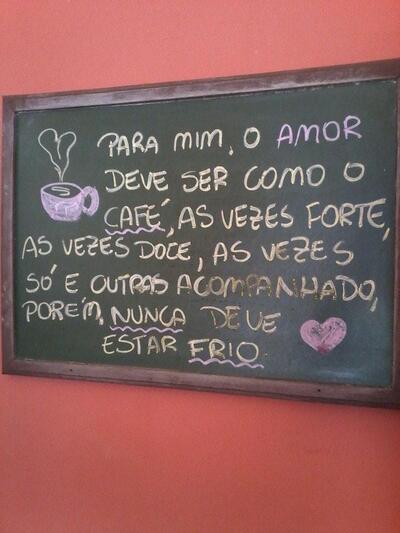 PARA MIM, O AMOR
DEVE SER COMO O
CAFÉ, AS VEZES FORTE,
AS VEZES DOCE, AS VEZES
SÓ E OUTRAS ACOMPANHADO,
PORÉM, NUNCA DEVE
ESTAR FRIO.